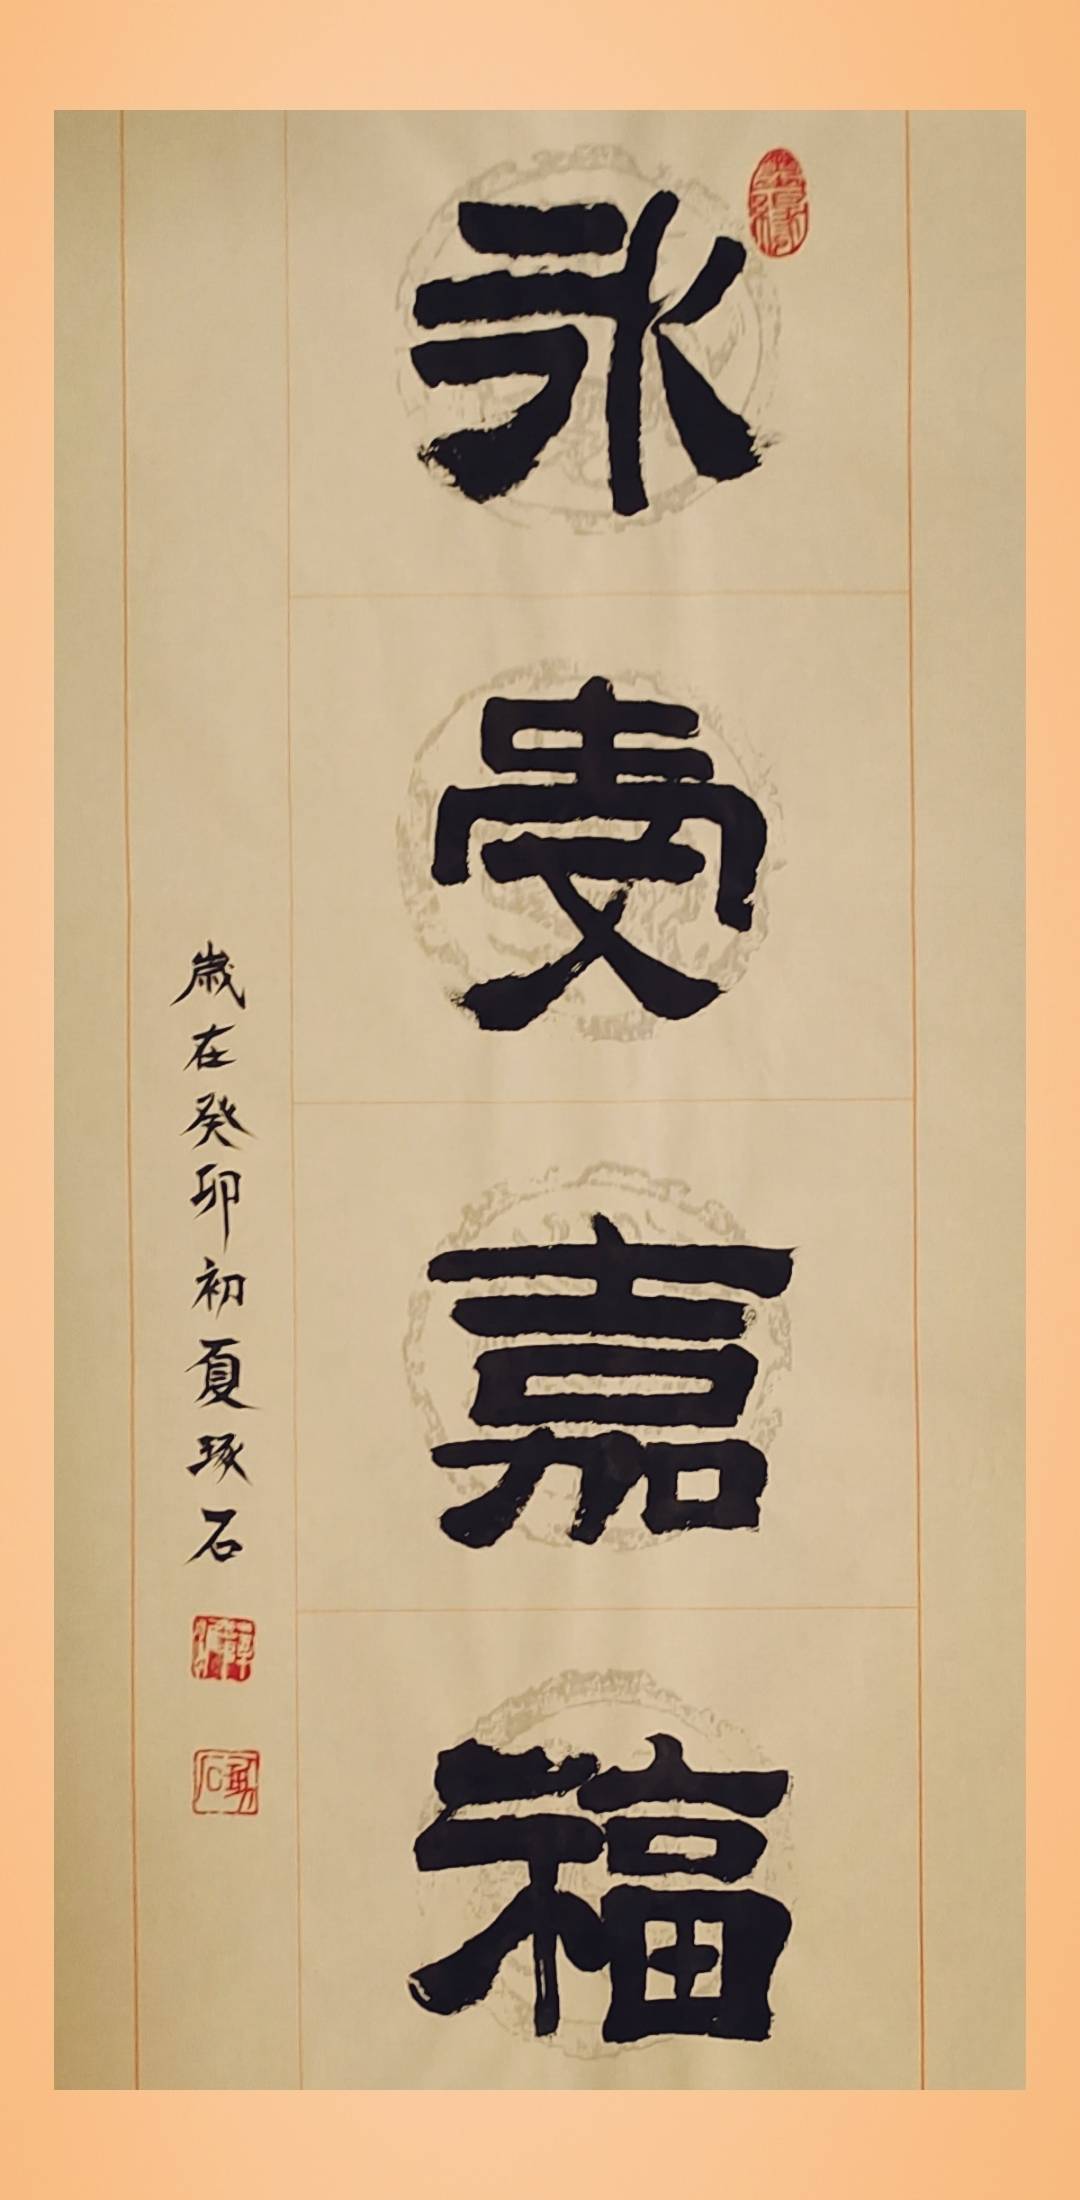 永受嘉福
歲在癸卯初夏琢石